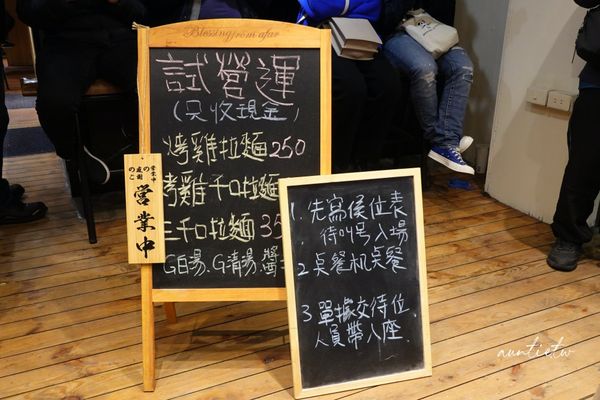 Blessing from afar
試營運
(只收現金)
烤雞拉麵250
烤雞千口拉麵
三千口拉麵 35
G白湯、G清湯、醬
營業中
の
営業中
1. 先寫侯位表
待叫号入場
2 桌餐机桌餐
3 單據交待位
人員帶入座.
auntietw